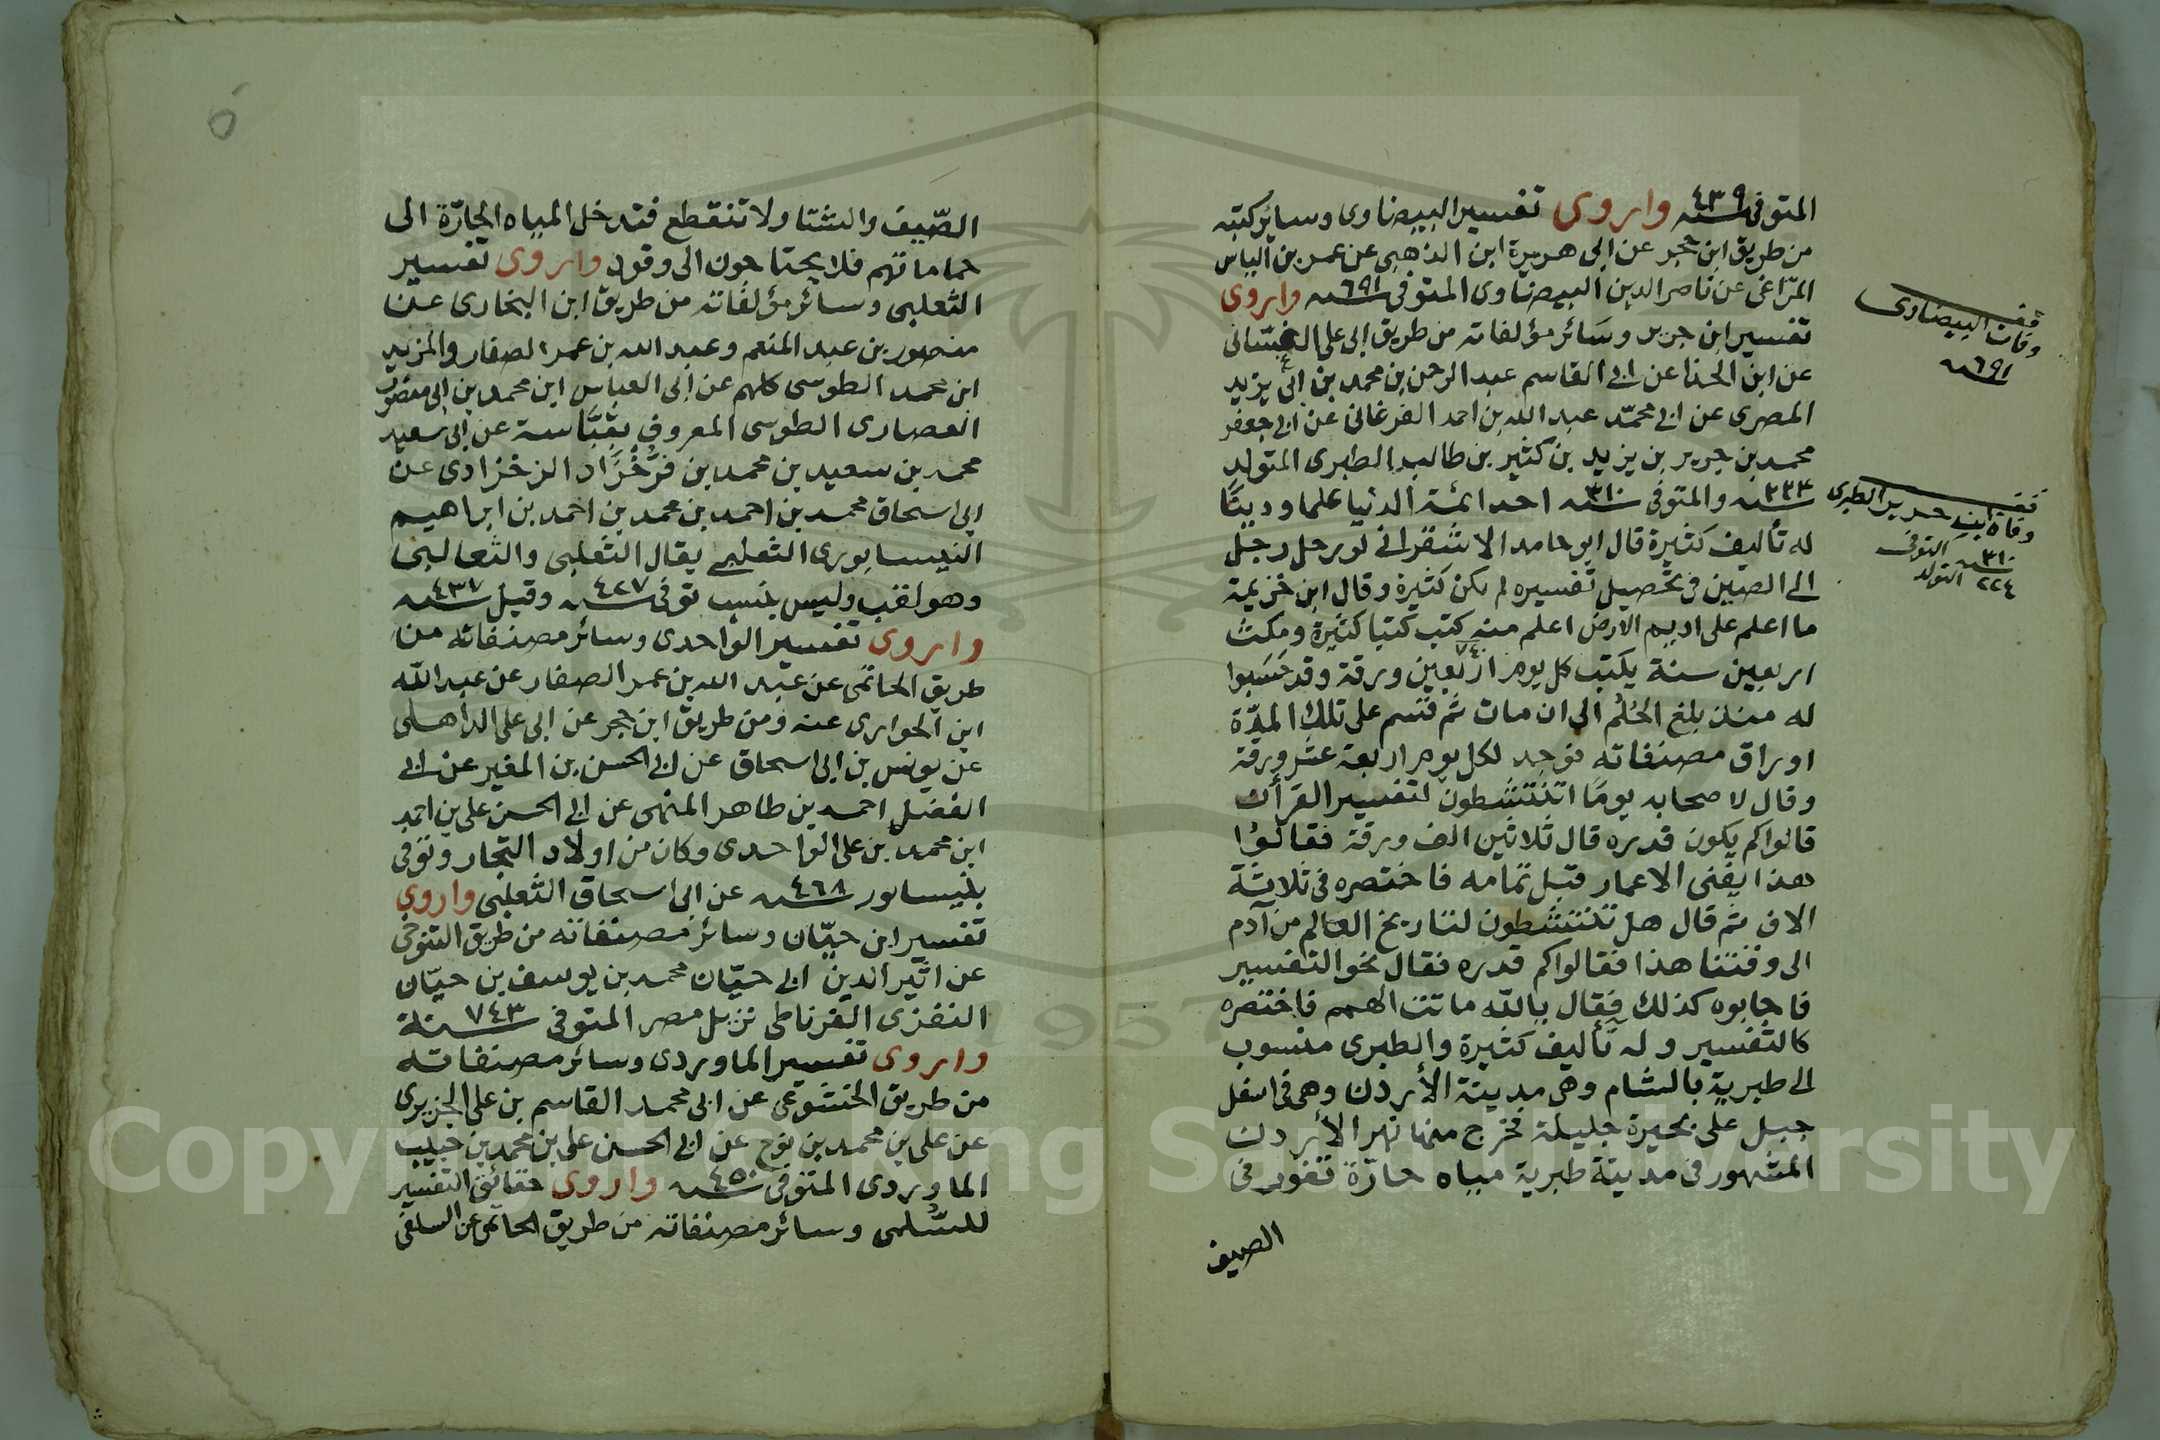 المتوفى سنة ٤٣٩ واروى تفسير البيضاوى وسائر كتبه
من طريق ابن حجر عن ابى هريرة ابن الذهبى عن عمر بن الياس
المراغى عن ناصر الدين البيضاوى المتوفى سنة ٦٩١ واروى
تفسير ابن جرير وسائر مؤلفاته من طريق ابى على الغسّانى
عن ابن الحذا عن ابى القاسم عبد الرحمن بن محمد بن ابى يزيد
المصرى عن ابى محمّد عبد الله بن احمد الفرغانى عن ابى جعفر
محمد بن جرير بن يزيد بن كثير بن طالب الطبرى المتولد
سنة ٢٢٤ والمتوفى سنة ٣١٠ احد ائمة الدنيا علما ودينًا
له تأليف كثيرة قال ابو حامد الاسفرانى لو رحل رجل
الى الصين فى تحصيل تفسيره لم يكن كثيرة وقال ابن خزيمة
ما اعلم على اديم الارض اعلم منه كتب كتبا كثيرة ومكث
اربعين سنة يكتب كل يوم اربعين ورقة وقد حسَبوا
له منذ بلغ الحُلُم الى ان مات ثم قسم على تلك المدّة
اوراق مصنفاته فوجد لكل يوم اربعة عشر ورقة
وقال لاصحابه يومًا اتنتشطون لتفسير القرأن
قالوا كم يكون قدره قال ثلاثين الف ورقة فقالوا
هذا يفنى الاعمار قبل تمامه فاختصره فى ثلاثة
الاف ثم قال هل تنتشطون لتاريخ العالم من آدم
الى وقتنا هذا فقالوا كم قدره فقال نحو التفسير
فاجابوه كذلك فقال بالله ماتت الهمم فاختصره
كالتفسير وله تأليف كثيرة والطبرى منسوب
الى طبرية بالشام وهى مدينة الأردن وهى فى اسفل
جبل على بحيرة جليلة تخرج منها نهر الأردن
المشهور فى مدينة طبرية مياه حارّة تفور فى
الصيف
قف
وفات البيضاوى
سنة ٦٩١
قف
وفاة ابن جرير الطبرى
سنة ٣١٠ التوفى
٢٢٤ التولد
٥
الصّيف والشتا ولا تنقطع فتدخل المياه الحارّة الى
حماماتهم فلا يحتاجون الى وقود واروى تفسير
الثعلبى وسائر مؤلفاته من طريق ابن البخارى عن
منصور بن عبد المنعم وعبد الله بن عمر الصفار والمزيد
ابن محمد الطوسى كلهم عن ابى العباس ابن محمد بن ابى منصور
العصارى الطوسى المعروف بعَبَّاسة عن ابى سعيد
محمد بن سعيد بن محمد بن فَرُّخْزَاد الزخزادى عن
ابى اسحاق محمد بن احمد بن محمد بن احمد بن ابراهيم
النيسابورى الثعلبى يقال الثعلبى والثعالبى
وهو لقب وليس بنسب توفى سنة ٤٢٧ وقيل سنة ٤٣٧
واروى تفسير الواحدى وسائر مصنفاته من
طريق الحاتمى عن عبد الله بن عمر الصفار عن عبد الله
ابن الحوارى عنه ومن طريق ابن حجر عن ابى على الداهلى
عن يونس بن ابى اسحاق عن ابى الحسن بن المغير عن ابى
الفضل احمد بن طاهر المنهى عن ابى الحسن على بن احمد
ابن محمد بن على الواحدى وكان من اولاد التجار وتوفى
بنيسابور سنة ٤٦٨ عن ابى اسحاق الثعلبى واروى
تفسير ابن حيّان وسائر مصنفاته من طريق التنوخى
عن اثير الدين ابى حيّان محمد بن يوسف بن حيّان
النفزى الغرناطى نزيل مصر المتوفى سنة ٧٤٣
واروى تفسير الماوردى وسائر مصنفاته
من طريق الخشوعى عن ابى محمد القاسم بن على الحريرى
عن على بن محمد بن نوح عن ابى الحسن على بن محمد بن حبيب
الماوردى المتوفى سنة ٤٥٠ واروى حقائق التفسير
للسُّلمى وسائر مصنفاته من طريق الحاتمى عن السلفى
Copyright © King Saud University
1957